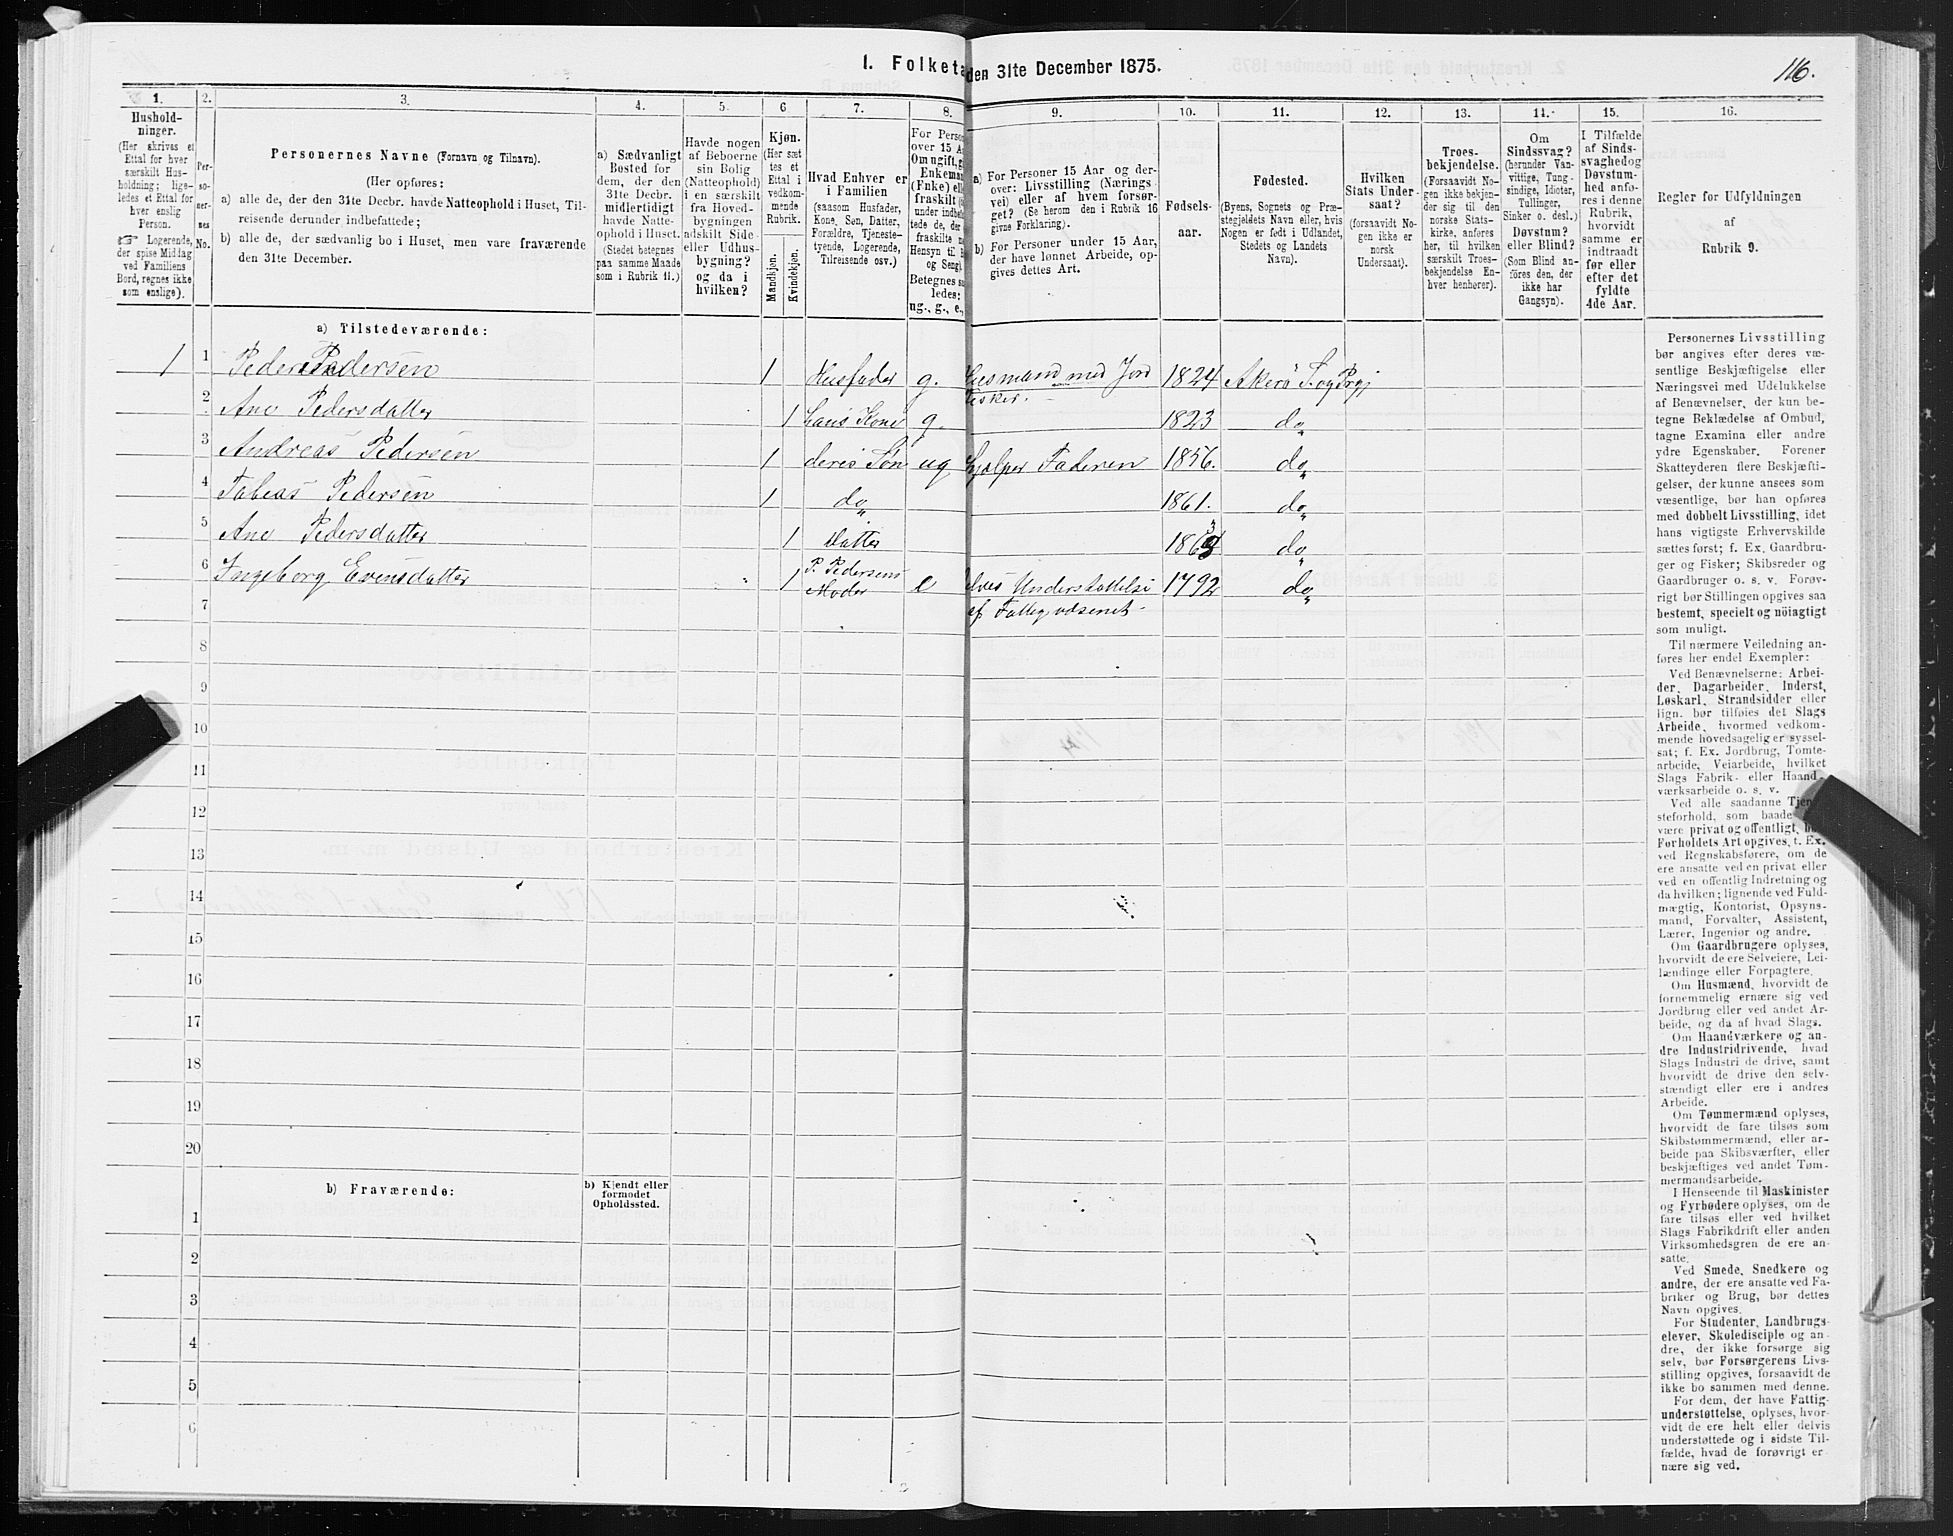 1. Folketa den 31te December 1875.
116.
1. 2. 3. 4. 5. 6 7. 8. 9. 10. 11. 12. 13. 14. 15. 16.
Hushold-
ninger.
(Her skrives et
Ettal for hver
særskilt Hus-
holdning; lige-
ledes et Ettal for
hver enslig
Person.
☞ Logerende,
der spise Middag
ved Familiens
Bord, regnes ikke
som enslige).
Per-
so-
ner-
nes
No.
Personernes Navne (Fornavn og Tilnavn).
(Her opføres:
a) alle de, der den 31te Decbr. havde Natteophold i Huset, Til-
reisende derunder indbefattede;
b) alle de, der sædvanlig bo i Huset, men vare fraværende
den 31te December.
a) Sædvanligt
Bosted for
dem, der den
31te Decbr.
midlertidigt
havde Natte-
ophold i Huset.
(Stedet betegnes
paa samme Maade
som i Rubrik 11.)
Havde nogen
af Beboerne
sin Bolig
(Natteophold)
i en særskilt
fra Hoved-
bygningen
adskilt Side-
eller Udhus-
bygning?
og da i
hvilken?
Kjøn.
(Her sæt-
tes et
Ettal i
vedkom-
mende
Rubrik.
Mandkjøn.
Kvindekjøn.
Hvad Enhver er
i Familien
(saasom Husfader,
Kone, Søn, Datter,
Forældre, Tjeneste-
tyende, Logerende,
Tilreisende osv.)
For Perso
over 15 A
Om ugift, g
Enkeman
(Enke) ell
fraskilt (
under indbe
tede de, der
fraskilte
Hensyn til B
og Seng).
Betegnes sa
ledes:
ug., g., e.,
a) For Personer 15 Aar og der-
over: Livsstilling (Nærings-
vei) eller af hvem forsør-
get? (Se herom den i Rubrik 16
givne Forklaring).
b) For Personer under 15 Aar,
der have lønnet Arbeide, op-
gives dettes Art.
Fødsels-
aar.
Fødested.
(Byens, Sognets og Præ-
stegjeldets Navn eller, hvis
Nogen er født i Udlandet,
Stedets og Landets
Navn).
Hvilken
Stats Under-
saat?
(forsaavidt No-
gen ikke er
norsk
Undersaat).
Troes-
bekjendelse.
(Forsaavidt No-
gen ikke bekjen-
der sig til den
norske Stats-
kirke, anføres
her, til hvilken
særskilt Troes-
bekjendelse En-
hver henhører).
Om
Sindssvag?
(herunder Van-
vittige, Tung-
sindige, Idioter,
Tullinger,
Sinker o. desl.)
Døvstum?
eller Blind?
(Som Blind an-
føres den, der
ikke har
Gangsyn).
I Tilfælde
af Sinds-
svaghed og
Døvstum-
hed anfø-
res i denne
Rubrik,
hvorvidt
samme er
indtraadt
før eller
efter det
fyldte
4de Aar.
Regler for Udfyldningen
af
Rubrik 9.
a) Tilstedeværende:
1 1 Peder Pedersen 1 Husfader g. Husmand med Jord 1824 Akerö S. og Prgj
Fisker.
2 Ane Pedersdatter 1 hans Kone g. 1823 do
3 Andreas Pedersen 1 deres Søn ug hjælper Faderen 1856. do
4 Tobias Pedersen 1 do 1861. do
5 Ane Pedersdatter 1 Datter 1863 do
6 Ingeborg Evensdatter 1 P. Pedersens Moder e Understøttelse 1792 do
7 af Fattigvæsenet
8
9
10
11
12
13
14
15
16
17
18
19
20
b) Fraværende:
b) Kjendt eller
formodet
Opholdssted.
1
2
3
4
5
6
Personernes Livsstilling
bør angives efter deres væ-
sentlige Beskjæftigelse eller
Næringsvei med Udelukkelse
af Benævnelser, der kun be-
tegne Beklædelse af Ombud,
tagne Examina eller andre
ydre Egenskaber. Forener
Skatteyderen flere Beskjæfti-
gelser, der kunne ansees som
væsentlige, bør han opføres
med dobbelt Livsstilling, idet
hans vigtigste Erhvervskilde
sættes først; f. Ex. Gaardbru-
ger og Fisker; Skibsreder og
Gaardbruger o. s. v. Forøv-
rigt bør Stillingen opgives saa
bestemt, specielt og nöiagtigt
som muligt.
Til nærmere Veiledning an-
føres her endel Exempler:
Ved Benævnelserne: Arbei-
der, Dagarbeider, Inderst,
Løskarl, Strandsidder eller
lign. bør tilføies det Slags
Arbeide, hvormed vedkom-
mende hovedsagelig er syssel-
sat; f. Ex. Jordbrug, Tomte-
arbeide, Veiarbeide, hvilket
Slags Fabrik- eller Haand-
værksarbeide o. s. v.
Ved alle saadanne Tjen
steforhold, som baade
være privat og offentligt, bø
Forholdets Art opgives, t. Ex.
ved Regnskabsførere, om de
ere ansatte ved en privat eller
ved en offentlig Indretning og
da hvilken; lignende ved Fuld-
mægtig, Kontorist, Opsyns-
mand, Forvalter, Assistent,
Lærer, Ingeniør og andre.
Om Gaardbrugere oplyses,
hvorvidt de ere Selveiere, Lei-
lændinge eller Forpagtere.
Om Husmænd, hvorvidt de
fornemmelig ernære sig ved
Jordbrug eller ved andet Ar-
beide, og da af hvad Slags.
Om Haandværkere og an-
dre Industridrivende, hvad
Slags Industri de drive, samt
hvorvidt de drive den selv-
stændigt eller ere i andres
Arbeide.
Om Tømmermænd oplyses,
hvorvidt de fare tilsøs som
Skibstømmermænd, eller ar-
beide paa Skibsværfter, eller
beskjæftiges ved andet Tøm-
mermandsarbeide.
I Henseende til Maskinister
og Fyrbødere oplyses, om de
fare tilsøs eller ved hvilket
Slags Fabrikdrift eller anden
Virksomhedsgren de ere an-
satte.
Ved Smede, Snedkere og
andre, der ere ansatte ved Fa-
briker og Brug, bør dettes
Navn opgives.
For Studenter, Landbrugs-
elever, Skoledisciple og an-
dre, der ikke forsørge sig
selv, bør Forsørgerens Livs-
stilling opgives, forsaavidt de
ikke bo sammen med denne.
For dem, der have Fattig-
understøttelse, oplyses, hvor-
vidt de ere helt eller delvis
understøttede og i sidste Til-
fælde, hvad de forøvrigt er-
nære sig ved.